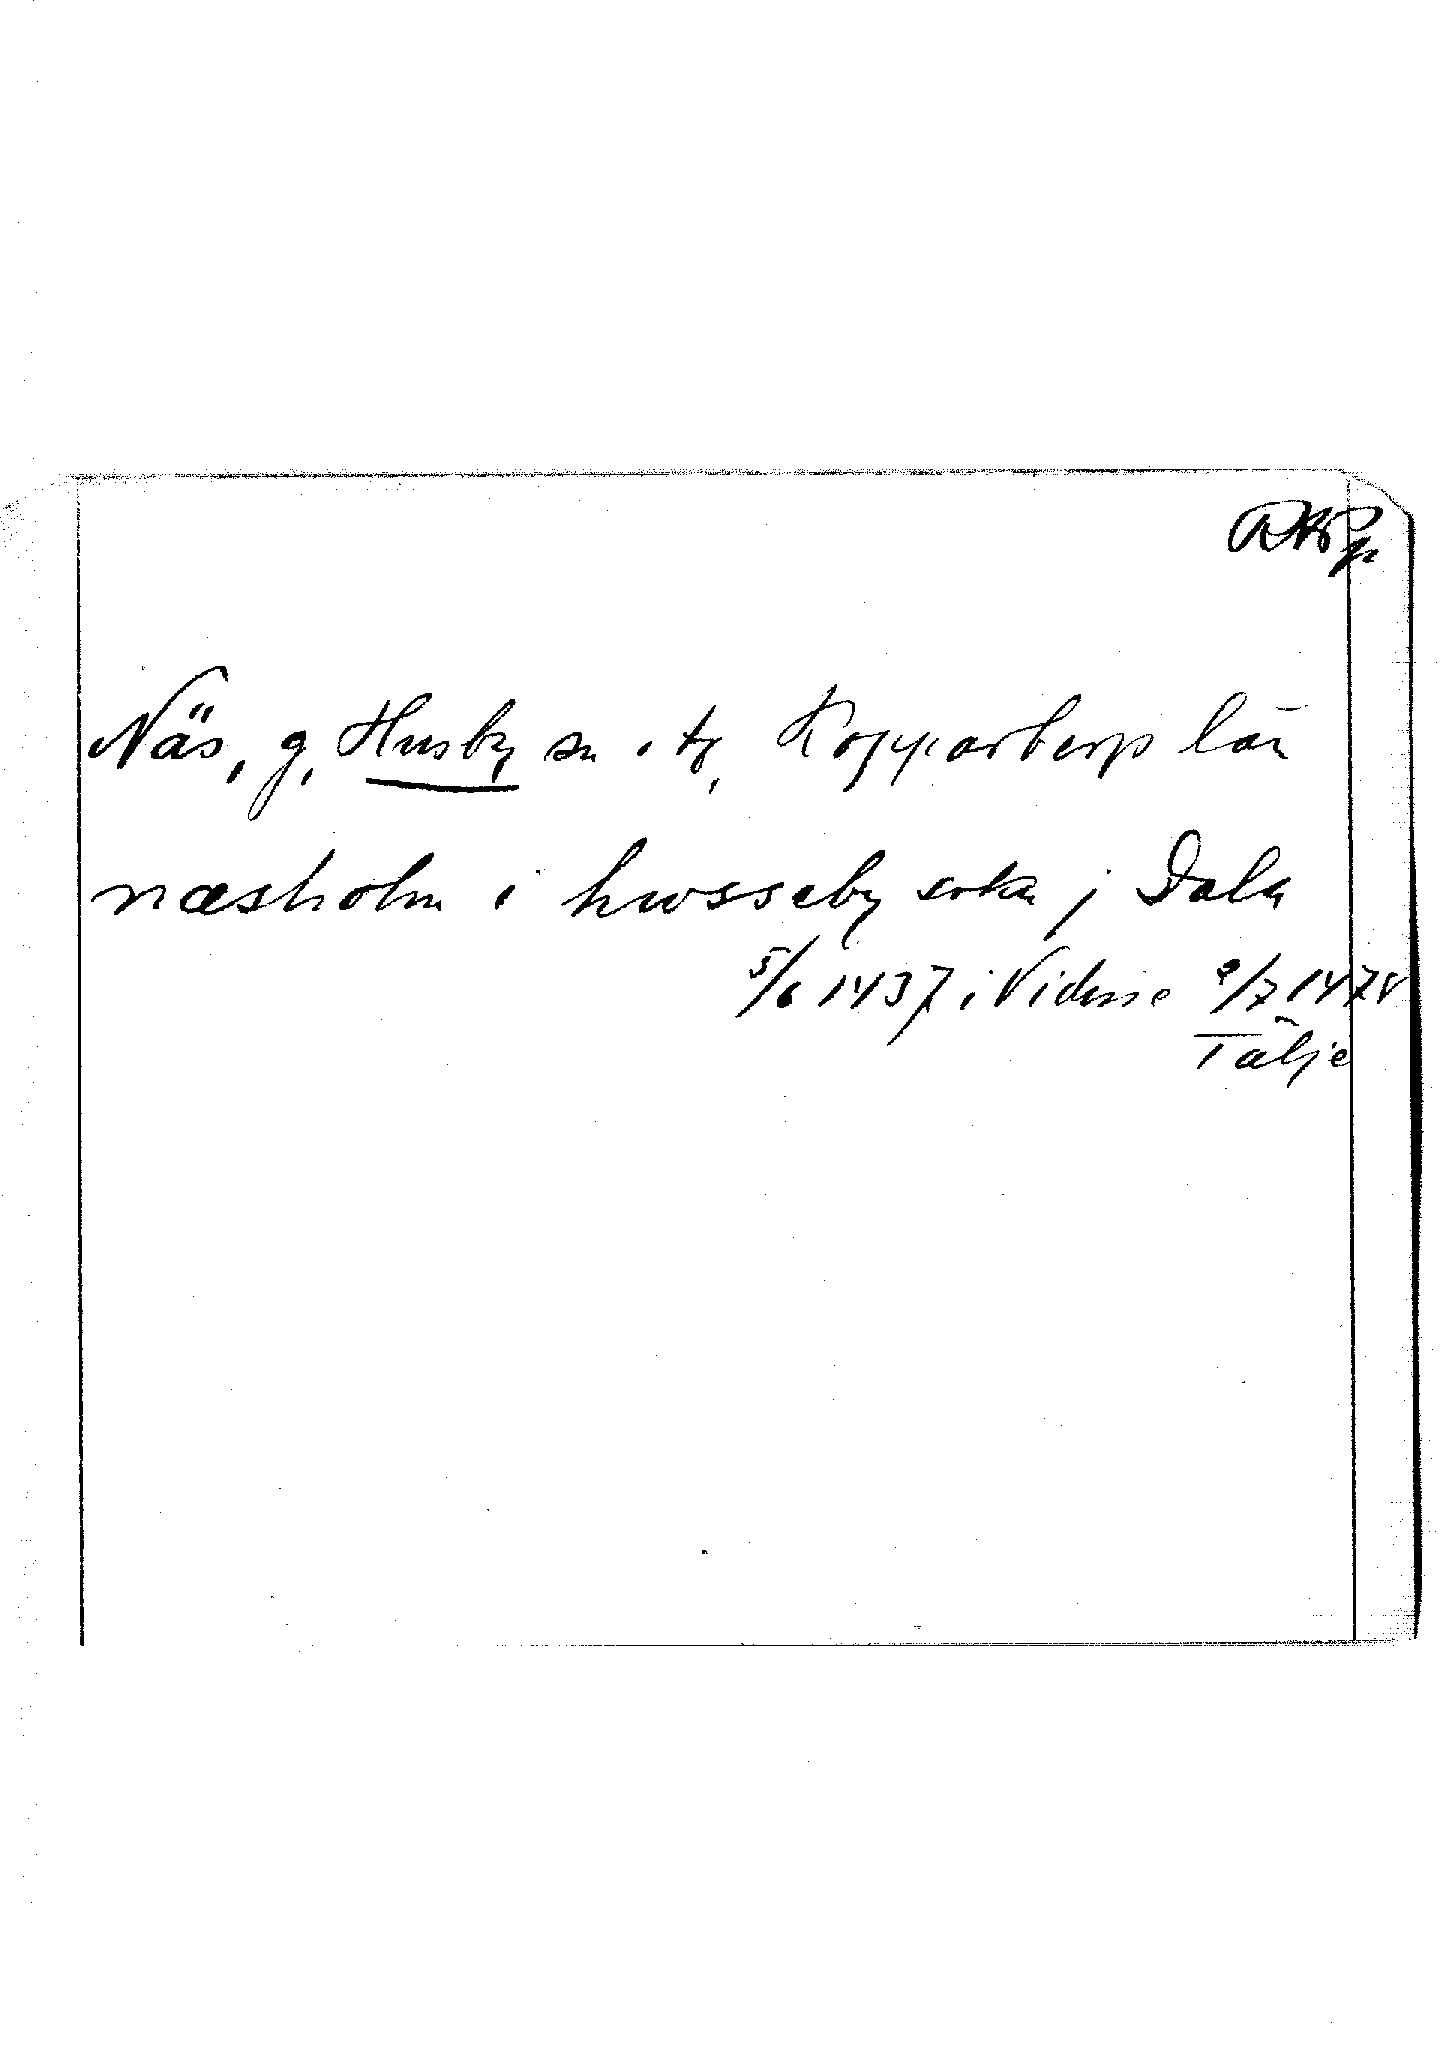 RAp
Näs, g, Husby sn o tg, Kopparbergs län
næsholm i hwsseby sokn j Dala
5/6 1437 i Vidisse 9/7 1478
Tälje